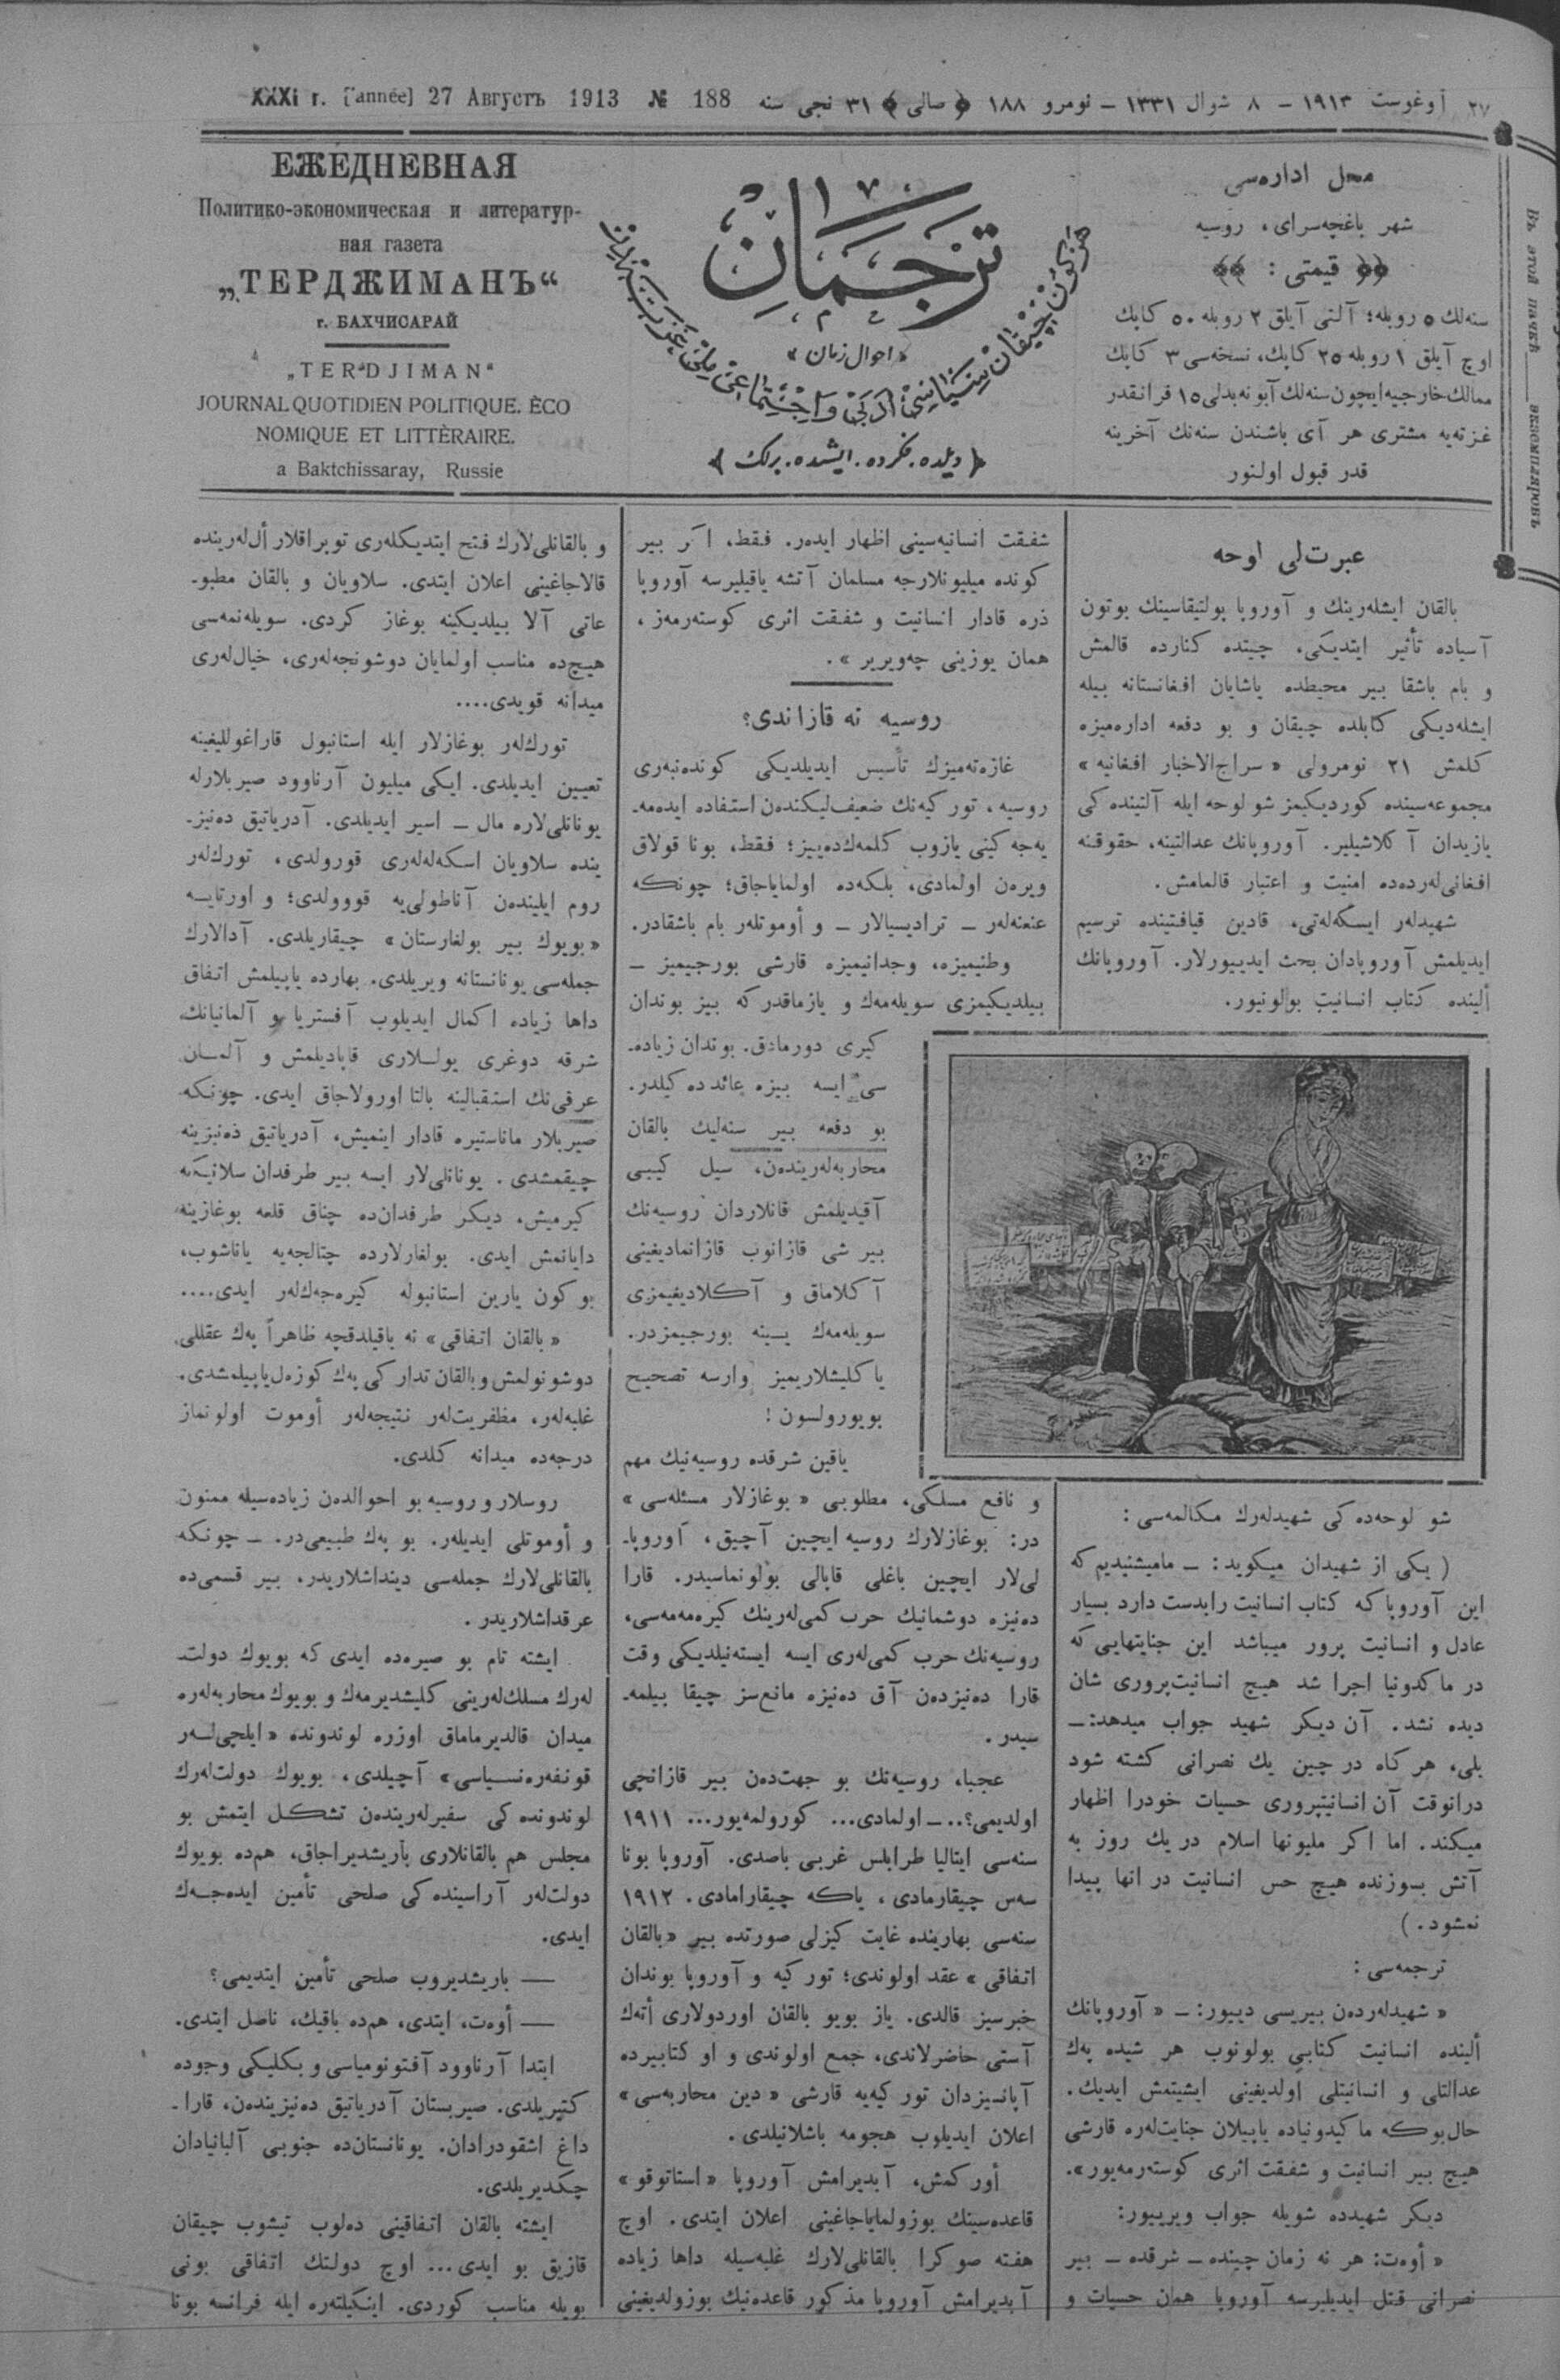 XXXI г. [année] 27 Августъ 1913 № 188
٢٧ آوغوست ١٩١٣ – ٨ شوال ١٣٣١ – نومرو ١٨٨ ﴿ صالی ﴾ ٣١ نجی سنه
ЕЖЕДНЕВНАЯ
Политико-экономическая и литератур-
ная газета
„ТЕРДЖИМАНЪ“
г. БАХЧИСАРАЙ
„TERDJIMAN“
JOURNAL QUOTIDIEN POLITIQUE. ÈCO
NOMIQUE ET LITTÈRAIRE.
a Baktchissaray, Russie
ترجمان
« احوال زمان »
هر كون چیقان سیاسی، ادبی و اجتماعی ملی غزته
﴿ دیلده. فكرده. ایشده. برلك ﴾
محل اداره‌سی
شهر باغچه‌سرای، روسیه
قیمتی :
سنه‌لك ٥ روبله؛ آلتی آیلق ٢ روبله ٥٠ كاپك
اوچ آیلق ١ روبله ٢٥ كاپك، نسخه‌سی ٣ كاپك
ممالك خارجیه ایچون سنه‌لك آبونه بدلی ١٥ فرانقدر
غزته‌یه مشتری هر آی باشندن سنه‌نك آخرینه
قدر قبول اولنور
Въ этой пачкѣ экземпляровъ
عبرت‌لی لوحه
بالقان ایشله‌رینك و آوروپا پولتیقاسینك بوتون
آسیاده تأثیر ایتدیكی، چیتده كنارده قالمش
و بام باشقا بیر محیطده یاشایان افغانستانه بیله
ایشله‌دیكی كابلده چیقان و بو دفعه اداره‌میزه
كلمش ٢١ نومرولی « سراج‌الاخبار افغانیه »
مجموعه‌سینده كوردیكیمز شو لوحه ایله آلتینده كی
یازیدان آ كلاشیلیر. آوروپانك عدالتینه، حقوقنه
افغانی‌لرده‌ده امنیت و اعتبار قالمامش.
شهیدله‌ر ایسكه‌له‌تی، قادین قیافتینده ترسیم
ایدیلمش آوروپادان بحث ایدییورلار. آوروپانك
ألینده كتاب انسانیت بولونیور.
شو لوحه‌ده كی شهیدله‌رك مكالمه‌سی :
( یكی از شهیدان میكوید : ــ مامیشنیدیم كه
این آوروپا كه كتاب انسانیت رابدست دارد بسیار
عادل و انسانیت پرور میباشد این جنایتهایی كه
در ماكدونیا اجرا شد هیچ انسانیت‌پروری شان
دیده نشد. آن دیكر شهید جواب میدهد: ــ
بلی، هر كاه در چین یك نصرانی كشته شود
درانوقت آن انسانیتپروری حسیات خودرا اظهار
میكند. اما اكر ملیونها اسلام در یك روز به
آتش بسوزنده هیچ حس انسانیت در انها پیدا
نمشود. )
ترجمه‌سی :
« شهیدله‌ردەن بیریسی دییور: ــ « آوروپانك
ألینده انسانیت كتابی بولونوب هر شیده پەك
عدالتلی و انسانیتلی اولدیغینی ایشیتمش ایدیك.
حال‌بوكه ماكیدونیاده یاپیلان جنایت‌له‌ره قارشی
هیچ بیر انسانیت و شفقت اثری كوسته‌رمه‌یور».
دیكر شهیدده شویله جواب ویرییور:
« أوەت: هر نه زمان چینده ــ شرقده ــ بیر
نصرانی قتل ایدیلیرسه آوروپا همان حسیات و
شفقت انسانیه‌سینی اظهار ایدەر. فقط، اكر بیر
كونده میلیونلارجه مسلمان آتشه یاقیلیرسه آوروپا
ذره قادار انسانیت و شفقت اثری كوسته‌رمه‌ز،
همان یوزینی چه‌ویریر ».
روسیه نه قازاندی؟
غازەته‌میزك تأسیس ایدیلدیكی كوندەنبه‌ری
روسیه، توركیه‌نك ضعیف‌لیكندەن استفاده ایدەمه‌ـ
یه‌جه‌كینی یازوب كلمه‌كدەییز؛ فقط، بونا قولاق
ویرەن اولمادی، بلكه‌ده اولمایاجاق؛ چونكه
عنعنه‌له‌ر ــ ترادیسیالار ــ و أوموتله‌ر بام باشقادر.
وطنیمیزه، وجدانیمیزه قارشی بورجیمیز ــ
بیلدیكیمزی سویله‌مه‌ك و یازماقدر كه بیز بوندان
كیری دورمادق. بوندان زیاده‌ـ
سی ایسه بیزه عائد ده كیلدر.
بو دفعه بیر سنه‌لیك بالقان
محاربه‌له‌ریندەن، سیل كیبی
آقیدیلمش قانلاردان روسیه‌نك
بیر شی قازانوب قازانمادیغینی
آ كلاماق و آكلادیغیمزی
سویله‌مه‌ك یینه بورجیمزدر.
یاكلیشلاریمیز وارسه تصحیح
بویورولسون !
یاقین شرقده روسیه‌نیك مهم
و نافع مسلكی، مطلوبی « بوغازلار مسئله‌سی »
در: بوغازلارك روسیه ایچین آچیق، آوروپاـ
لی‌لار ایچین باغلی قاپالی بولونماسیدر. قارا
دەنیزه دوشمانیك حرب كمی‌له‌رینك كیرەمه‌مه‌سی،
روسیه‌نك حرب كمی‌له‌ری ایسه ایسته‌نیلدیكی وقت
قارا دەنیزدەن آق دەنیزه مانع‌سز چیقا بیلمه‌ـ
سیدر.
عجبا، روسیه‌نك بو جهت‌دەن بیر قازانجی
اولدیمی؟.. ــ اولمادی... كورولمه‌یور... ١٩١١
سنه‌سی ایتالیا طرابلس غربی باصدی. آوروپا بونا
سه‌س چیقارمادی، یاكه چیقارامادی. ١٩١٢
سنه‌سی بهارینده غایت كیزلی صورتده بیر « بالقان
اتفاقی » عقد اولوندی؛ توركیه و آوروپا بوندان
خبرسیز قالدی. یاز بویو بالقان اوردولاری أته‌ك
آستی حاضرلاندی، جمع اولوندی و او كتابیرده
آپانسیزدان توركیه‌یه قارشی « دین محاربه‌سی »
اعلان ایدیلوب هجومه باشلانیلدی.
أوركمش، آبدیرامش آوروپا « استاتوقو »
قاعده‌سینك بوزولمایاجاغینی اعلان ایتدی. اوچ
هفته صوكرا بالقانلی‌لارك غلبه‌سیله داها زیاده
آبدیرامش آوروپا مذكور قاعده‌نیك بوزولدیغینی
و بالقانلی‌لارك فتح ایتدیكله‌ری توپراقلار أل‌له‌رینده
قالاجاغینی اعلان ایتدی. سلاویان و بالقان مطبوـ
عاتی آلا بیلدیكینه بوغاز كردی. سویله‌نمه‌سی
هیچ‌ده مناسب اولمایان دوشونجه‌له‌ری، خیال‌له‌ری
میدانه قویدی....
تورك‌له‌ر بوغازلار ایله استانبول قاراغوللیغینه
تعیین ایدیلدی. ایكی میلیون آرناوود صیربلارله
یونانلی‌لاره مال ــ اسیر ایدیلدی. آدریاتیق دەنیزـ
ینده سلاویان اسكه‌له‌له‌ری قورولدی، تورك‌له‌ر
روم ایلیندەن آناطولی‌یه قووولدی؛ و اورتایــه
« بویوك بیر بولغارستان » چیقاریلدی. آدالارك
جمله‌سی یونانستانه ویریلدی. بهارده یاپیلمش اتفاق
داها زیاده اكمال ایدیلوب آفستریا و آلمانیانك
شرقه دوغری یوللاری قاپادیلمش و آلمــان
عرقی‌نك استقبالینه بالتا اورولاجاق ایدی. چونكه
صیربلار ماناستیره قادار اینمیش، آدریاتیق دەنیزینه
چیقمشدی. یونانلی‌لار ایسه بیر طرفدان سلانیكه
كیرمیش، دیكر طرفدان‌ده چناق قلعه بوغازینه
دایانمش ایدی. بولغارلارده چتالجه‌یه یاناشوب،
بو كون یارین استانبوله كیره‌جه‌ك‌له‌ر ایدی....
« بالقان اتفاقی » نه باقیلدقچه ظاهراً پەك عقللی
دوشونولمش و بالقان تداركی پەك كوزەل یاپیلمشدی.
غلبه‌له‌ر، مظفریت‌له‌ر نتیجه‌له‌ر أوموت اولونماز
درجه‌ده میدانه كلدی.
روسلار و روسیه بو احوالدەن زیاده‌سیله ممنون
و أوموتلی ایدیله‌ر. بو پەك طبیعی‌در. ــ چونكه
بالقانلی‌لارك جمله‌سی دینداشلاریدر، بیر قسمی‌ده
عرقداشلاریدر.
ایشته تام بو صیرەده ایدی كه بویوك دولتـ
له‌رك مسلك‌له‌رینی كلیشدیرمه‌ك و بویوك محاربه‌له‌ره
میدان قالدیرماماق اوزره لوندونده « ایلچی‌لــه‌ر
قونفه‌رەنســیاسی » آچیلدی، بویوك دولت‌له‌رك
لوندونده كی سفیرله‌ریندەن تشكــل ایتمش بو
مجلس هم بالقانلاری باریشدیراجاق، هم‌ده بویوك
دولت‌له‌ر آراسینده كی صلحی تأمین ایدەجــه‌ك
ایدی.
— باریشدیروب صلحی تأمین ایتدیمی؟
— أوەت، ایتدی، هم‌ده باقیك، ناصل ایتدی.
ابتدا آرناوود آفتونومیاسی و بكلیكی وجوده
كتیریلدی. صیربستان آدریاتیق دەنیزیندەن، قاراـ
داغ اشقودرادان. یونانستان‌ده جنوبی آلبانیادان
چكدیریلدی.
ایشته بالقان اتفاقینی دەلوب تیشوب چیقان
قازیق بو ایدی... اوچ دولتك اتفاقی بونی
بویله مناسب كوردی. اینكیلته‌ره ایله فرانسه بونا